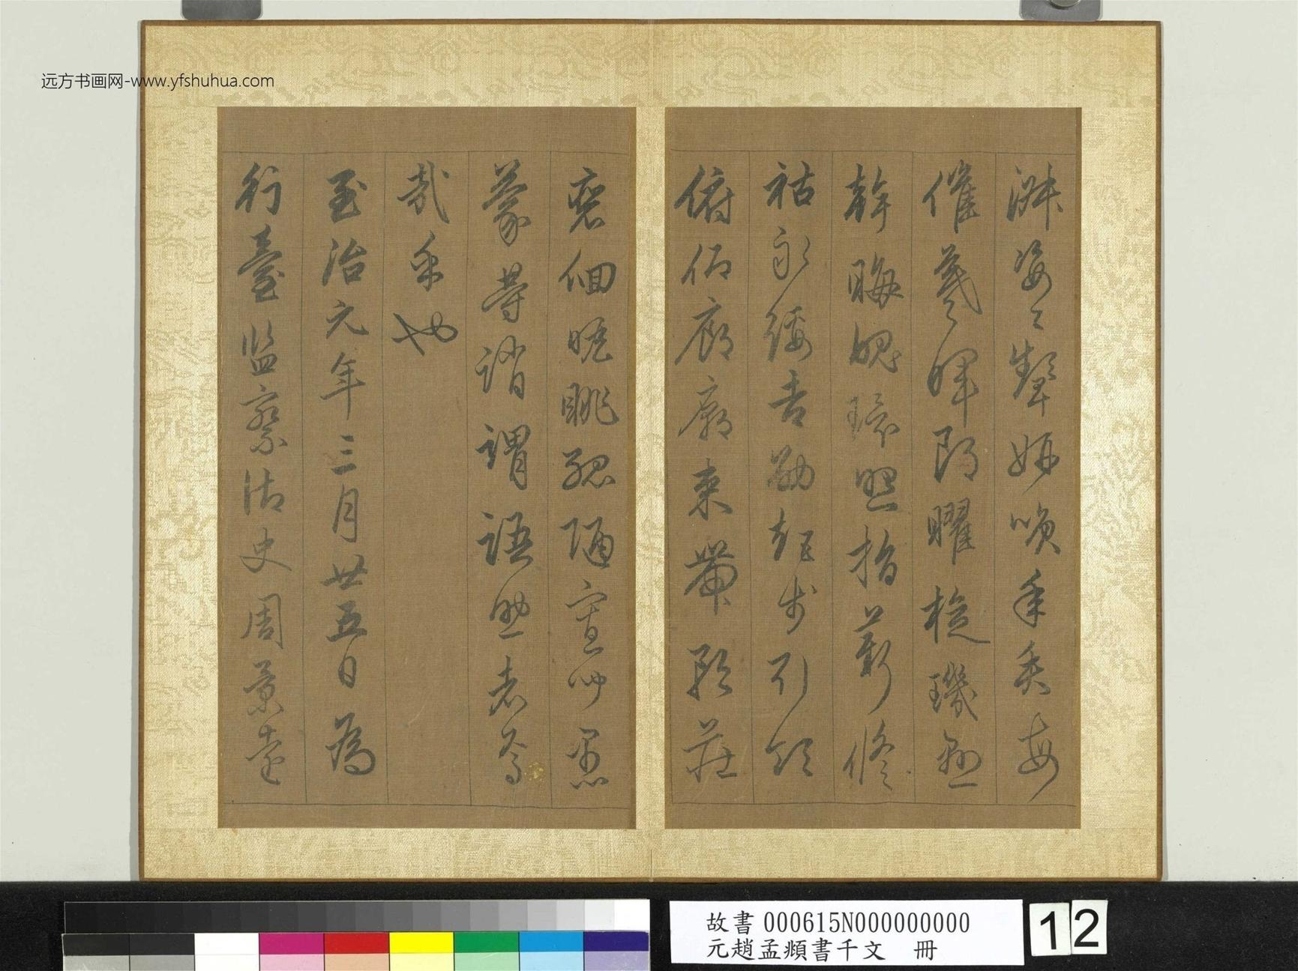 淑姿工顰妍咲年矢每
催羲暉朗曜璇璣懸
斡晦魄環照指薪脩
祜永綏吉劭矩步引領
俯仰廊廟束帶矜莊
裵佪瞻眺孤陋寡聞愚
蒙等誚謂語助者焉
哉乎也
至治元年三月廿五日為
行臺監察御史周景遠
远方书画网-www.yfshuhua.com
故書 000615N000000000
元趙孟頫書千文 冊
12